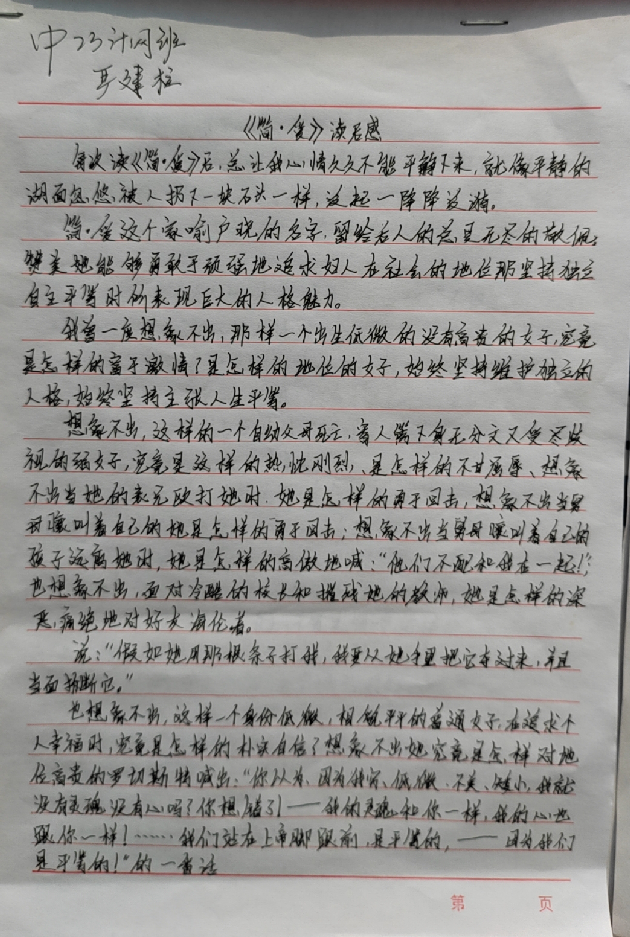 中23计网班
《简·爱》读后感
每次读《简·爱》后,总让我心情久久不能平静下来,就像平静的
湖面忽然被人扔下一块石头一样,泛起一阵阵波漪。
简·爱这个家喻户晓的名字,留给后人的总是无尽的敬佩;
她能够勇敢于顽强地追求妇人在社会的地位那坚持独立
自主平等时所表现巨大的人格魅力。
我曾一度想象不出,那样一个出生低微的没有高贵的女子,究竟
是怎样的富于激情?是怎样的地位的女子,始终坚持维护独立的
人格,始终坚持主张人生平等。
想象不出,这样的一个自幼父母死亡,寄人篱下身无分文又受尽歧
视的弱女子,究竟是这样的热忱刚烈、是怎样的不甘屈辱、想象
不出当她的表兄殴打她时,她是怎样的勇于回击,想象不出当舅
母嚷叫着自己的她是怎样的勇于回击;想象不出当舅母嚷叫着自己的
孩子远离她时,她是怎样的高傲地喊:“他们不配和我在一起!”;
也想象不出,面对冷酷的校长和摧残她的教师,她是怎样的深
恶痛绝地对好友海伦着。
说:“假如她用那根条子打我,我要从她手里把它夺过来,并且
当面折断它。”
也想象不出,这样一个身份低微,相貌平平的普通女子,在追求个
人幸福时,究竟是怎样的朴实自信?想象不出她究竟是怎样对地
位高贵的罗切斯特喊出:“你以为,因为我穷、低微、不美、矮小,我就
没有灵魂没有心吗?你想错了!——我的灵魂和你一样,我的心也
跟你一样!……我们站在上帝脚跟前,是平等的,——因为我们
是平等的!”的一番话
第 页